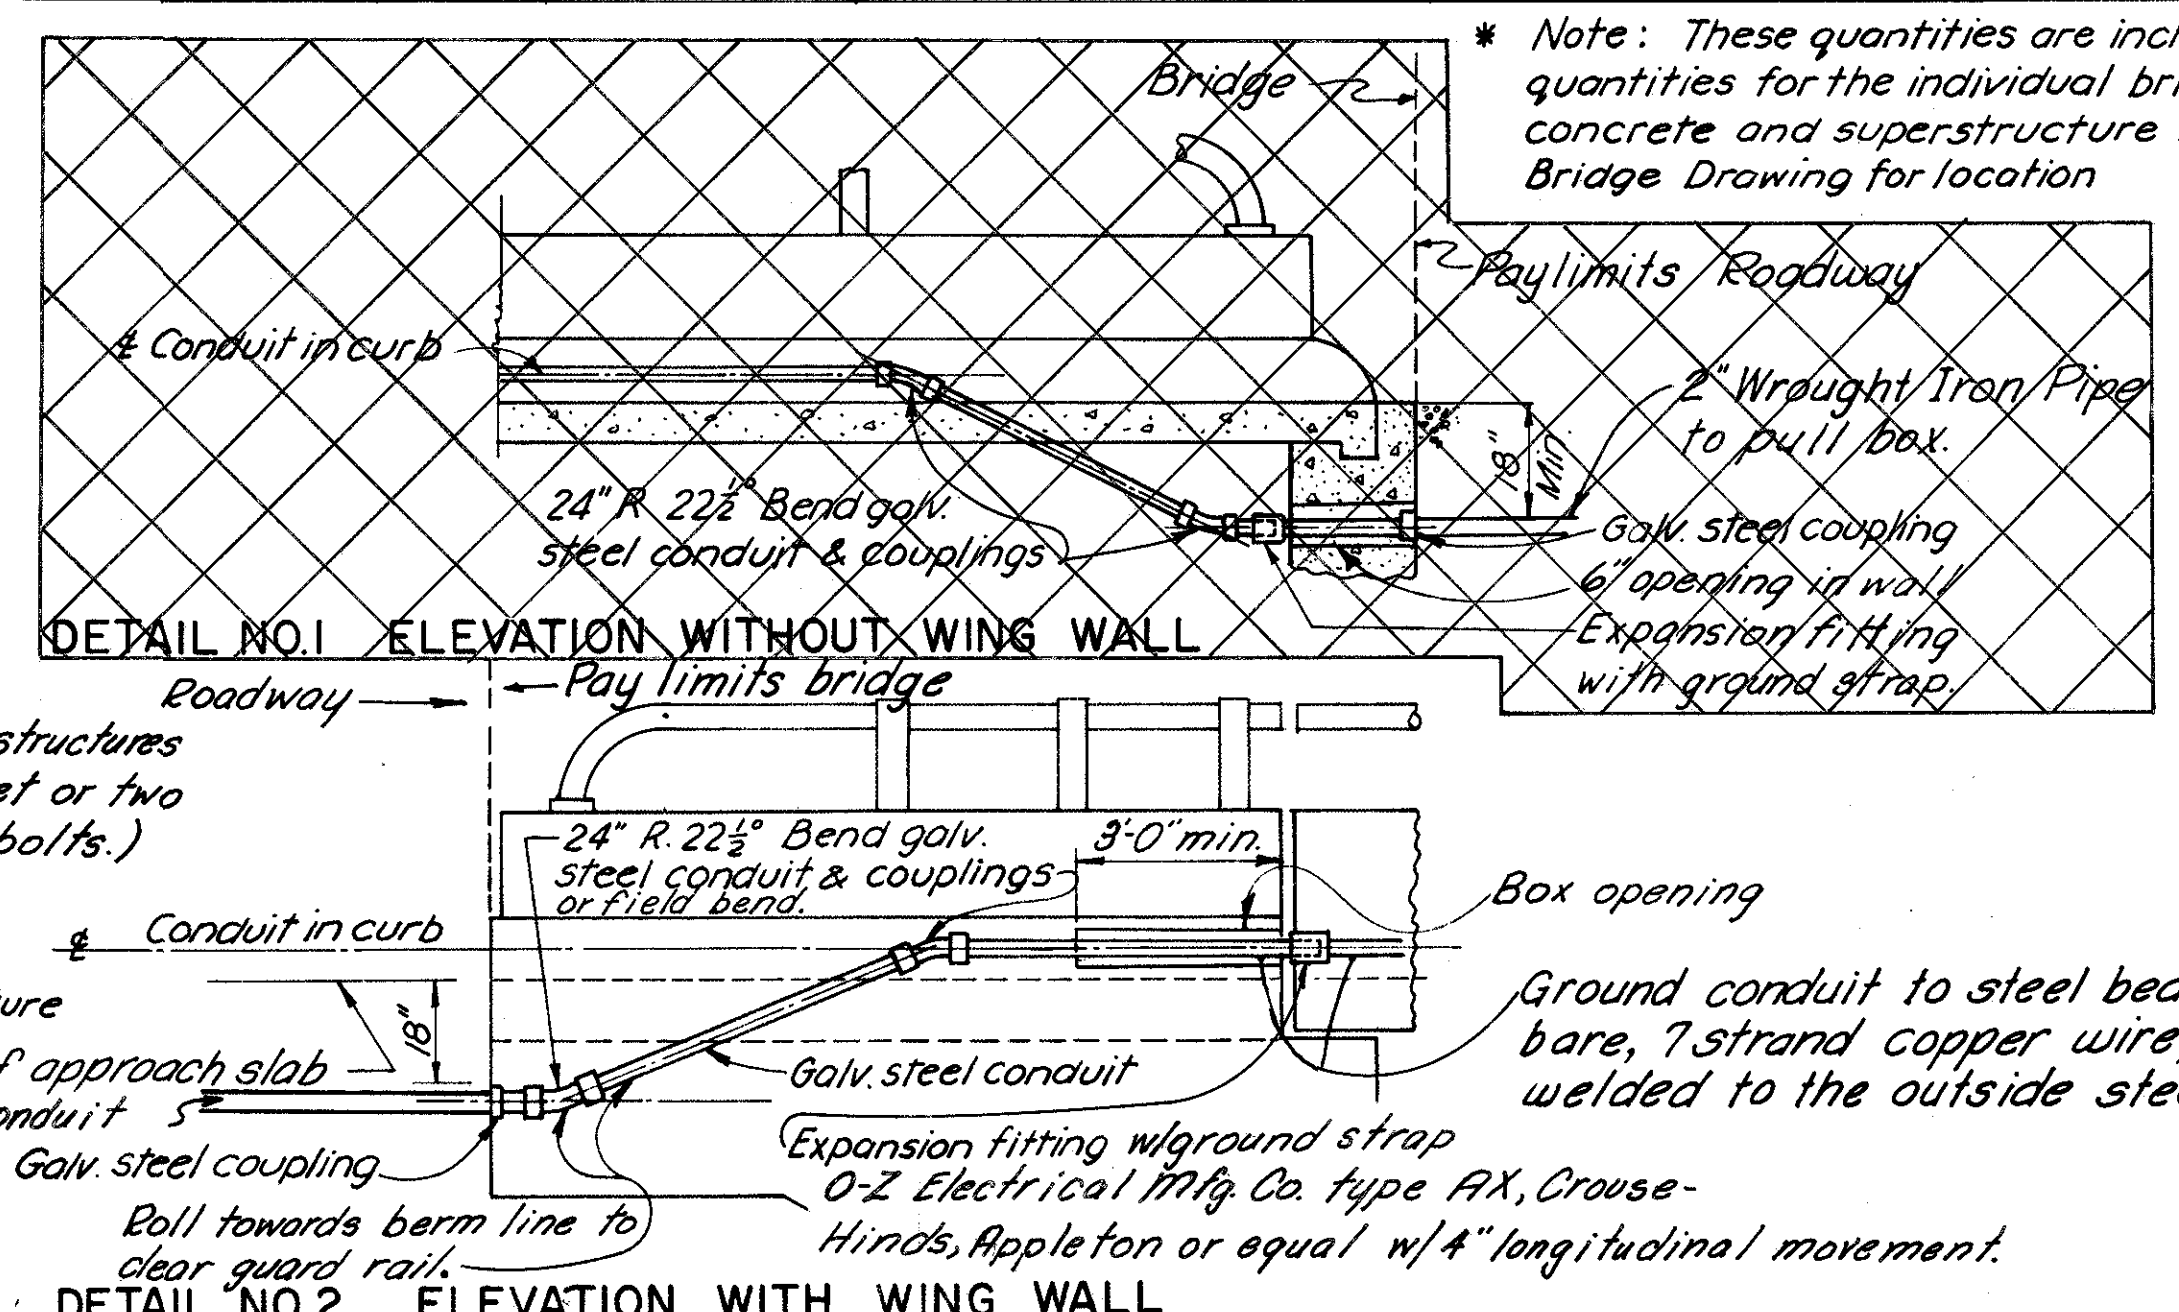 * Note: These quantities are incl
quantities for the individual bri
concrete and superstructure
Bridge Drawing for location
Bridge
Pay limits Roadway
℄ Conduit in curb
2" Wrought Iron Pipe
to pull box.
18" Min.
24" R 22½° Bend galv.
steel conduit & couplings
Galv. steel coupling
6" opening in wall
Expansion fitting
with ground strap.
DETAIL NO.1 ELEVATION WITHOUT WING WALL
Roadway
Pay limits bridge
structures
et or two
bolts.)
24" R. 22½° Bend galv.
steel conduit & couplings
or field bend.
3'-0" min.
Box opening
℄ Conduit in curb
ure
f approach slab
18"
onduit
Galv. steel coupling
Galv. steel conduit
Ground conduit to steel bea
bare, 7 strand copper wire,
welded to the outside stee
Expansion fitting w/ground strap
O-Z Electrical Mfg. Co. type AX, Crouse-
Hinds, Appleton or equal w/4" longitudinal movement.
Roll towards berm line to
clear guard rail.
DETAIL NO.2 ELEVATION WITH WING WALL